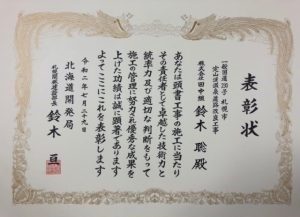 表彰状
一般国道230号 札幌市
定山渓温泉道路改良工事
株式会社田中組
鈴木 聡 殿
あなたは頭書工事の施工に当たり
その責任者として卓越した技術力と
統率力及び適切な判断をもって
施工の管理に努力され優秀な成果を
上げた功績は誠に顕著であります
よってここにこれを表彰します
令和二年七月二九日
北海道開発局
札幌開発建設部長
鈴木 亘